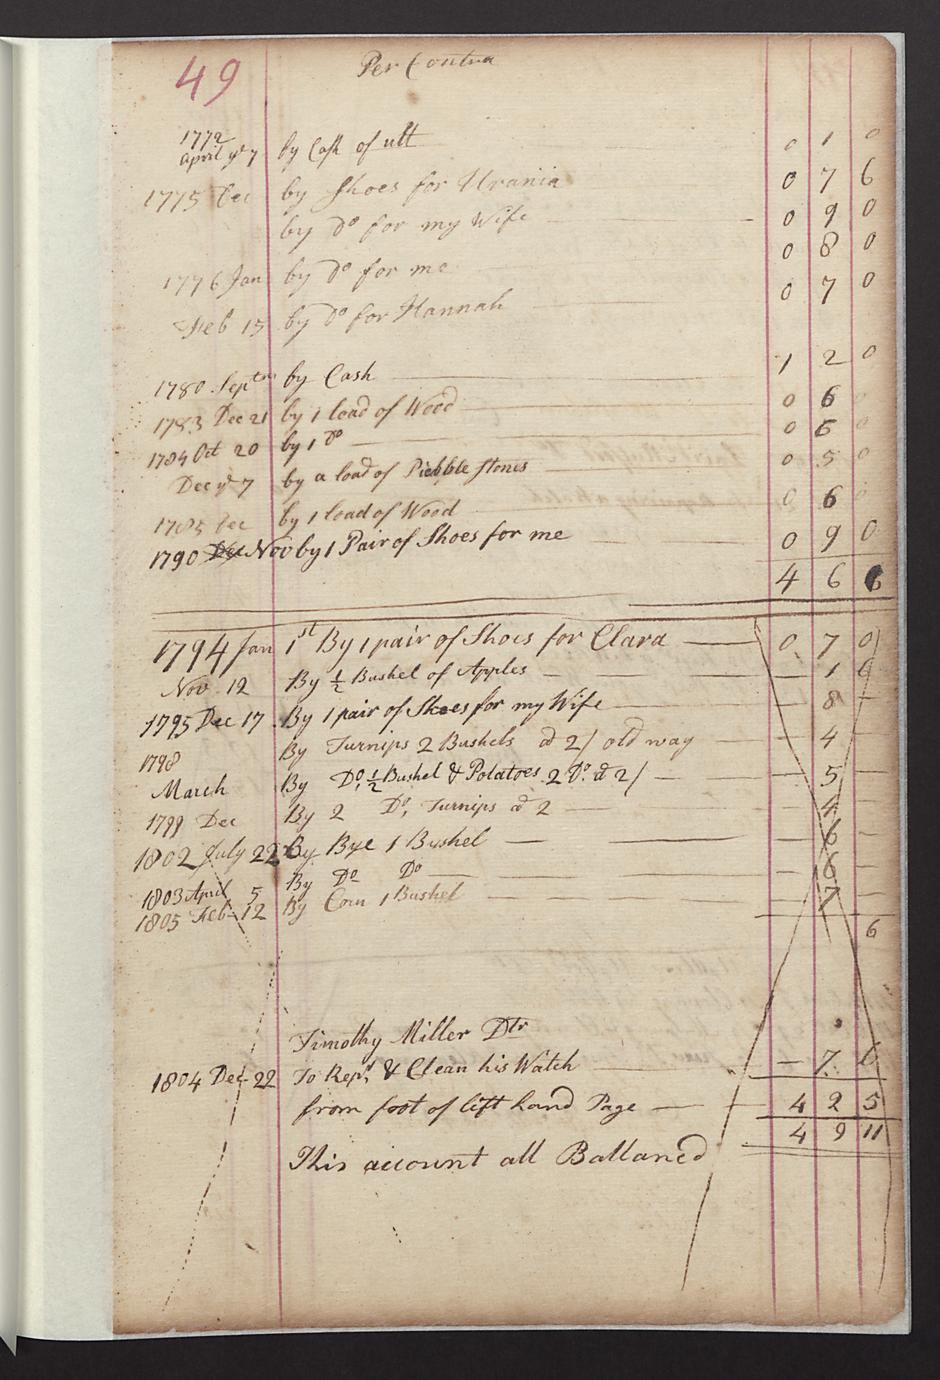 49 Per Contra
1772
April ye 7 by Cash of ult 0 1 0
1775 Dec by Shoes for Urania 0 7 6
by Do for my Wife 0 9 0
1776 Jan by Do for me 0 8 0
Feb 15 by Do for Hannah 0 7 0
1780 Septm by Cash 1 2 0
1783 Dec 21 by 1 load of Wood 0 6 0
1784 Oct 20 by 1 Do 0 6 0
Dec ye 7 by a load of Piebble stones 0 5 0
1785 Dec by 1 load of Wood 0 6 0
1790 Dec Nov by 1 Pair of Shoes for me 0 9 0
4 6 6
1794 Jan 1st By 1 pair of Shoes for Clara 0 7 0
Nov. 12 By 1/2 Bushel of Apples 1 6
1795 Dec 17 By 1 pair of Shoes for my Wife 8
1798 By Turnips 2 Bushels @ 2/ old way 4
March By Do 1/2 Bushel & Potatoes 2 Do @ 2/ 5
1799 Dec By 2 Do Turnips @ 2 4
1802 July 22 By Rye 1 Bushel 6
1803 April 5 By Do Do 6
1805 Feb 12 By Corn 1 Bushel 7
6
Timothy Miller Dtr
1804 Dec 22 To Repg & Clean his Watch 7 6
from foot of left hand Page 4 2 5
4 9 11
This account all Ballanced